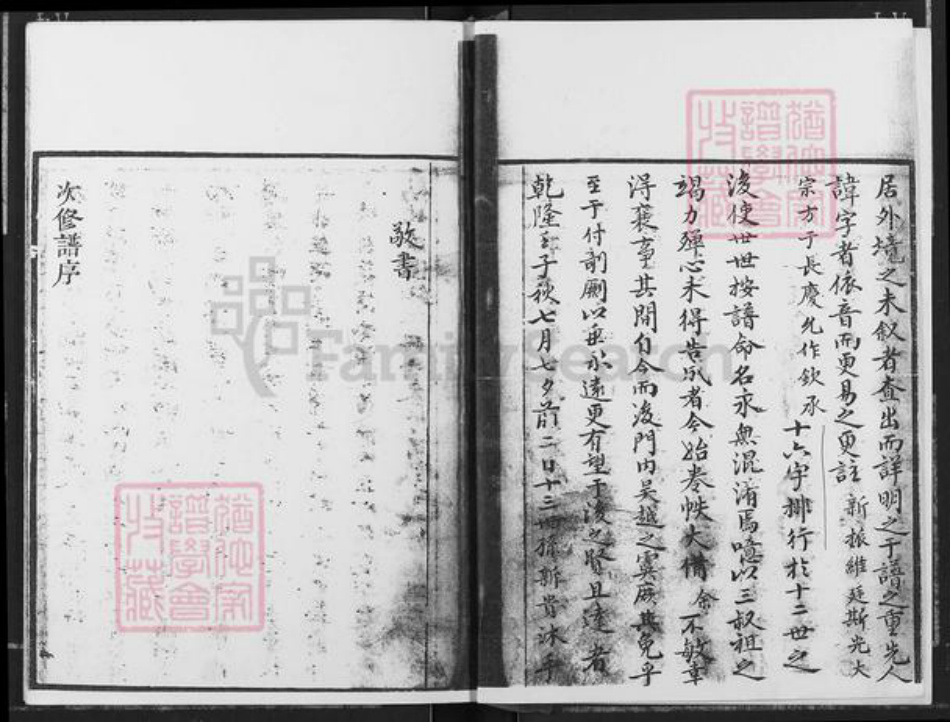 居外境之未敘者查出而詳明之于譜之重先人
諱字者依音而更易之更註 新振維廷斯光大
宗方于長慶允作欽承 十六字排行於十二世之
後使世世按譜命名永無混淆焉噫以三叔祖之
竭力殫心未得告成者今始卷帙大備余不敏幸
得襄事其間自今而後門內吴越之 庶其免乎
至于付剞劂以垂永遠更有望于後之賢且達者
乾隆壬子秋七月七夕前二日十三 孫斯貴沐手
敬書
次修譜序
FamilySearch
猶他家譜學會收藏
猶他家譜學會收藏